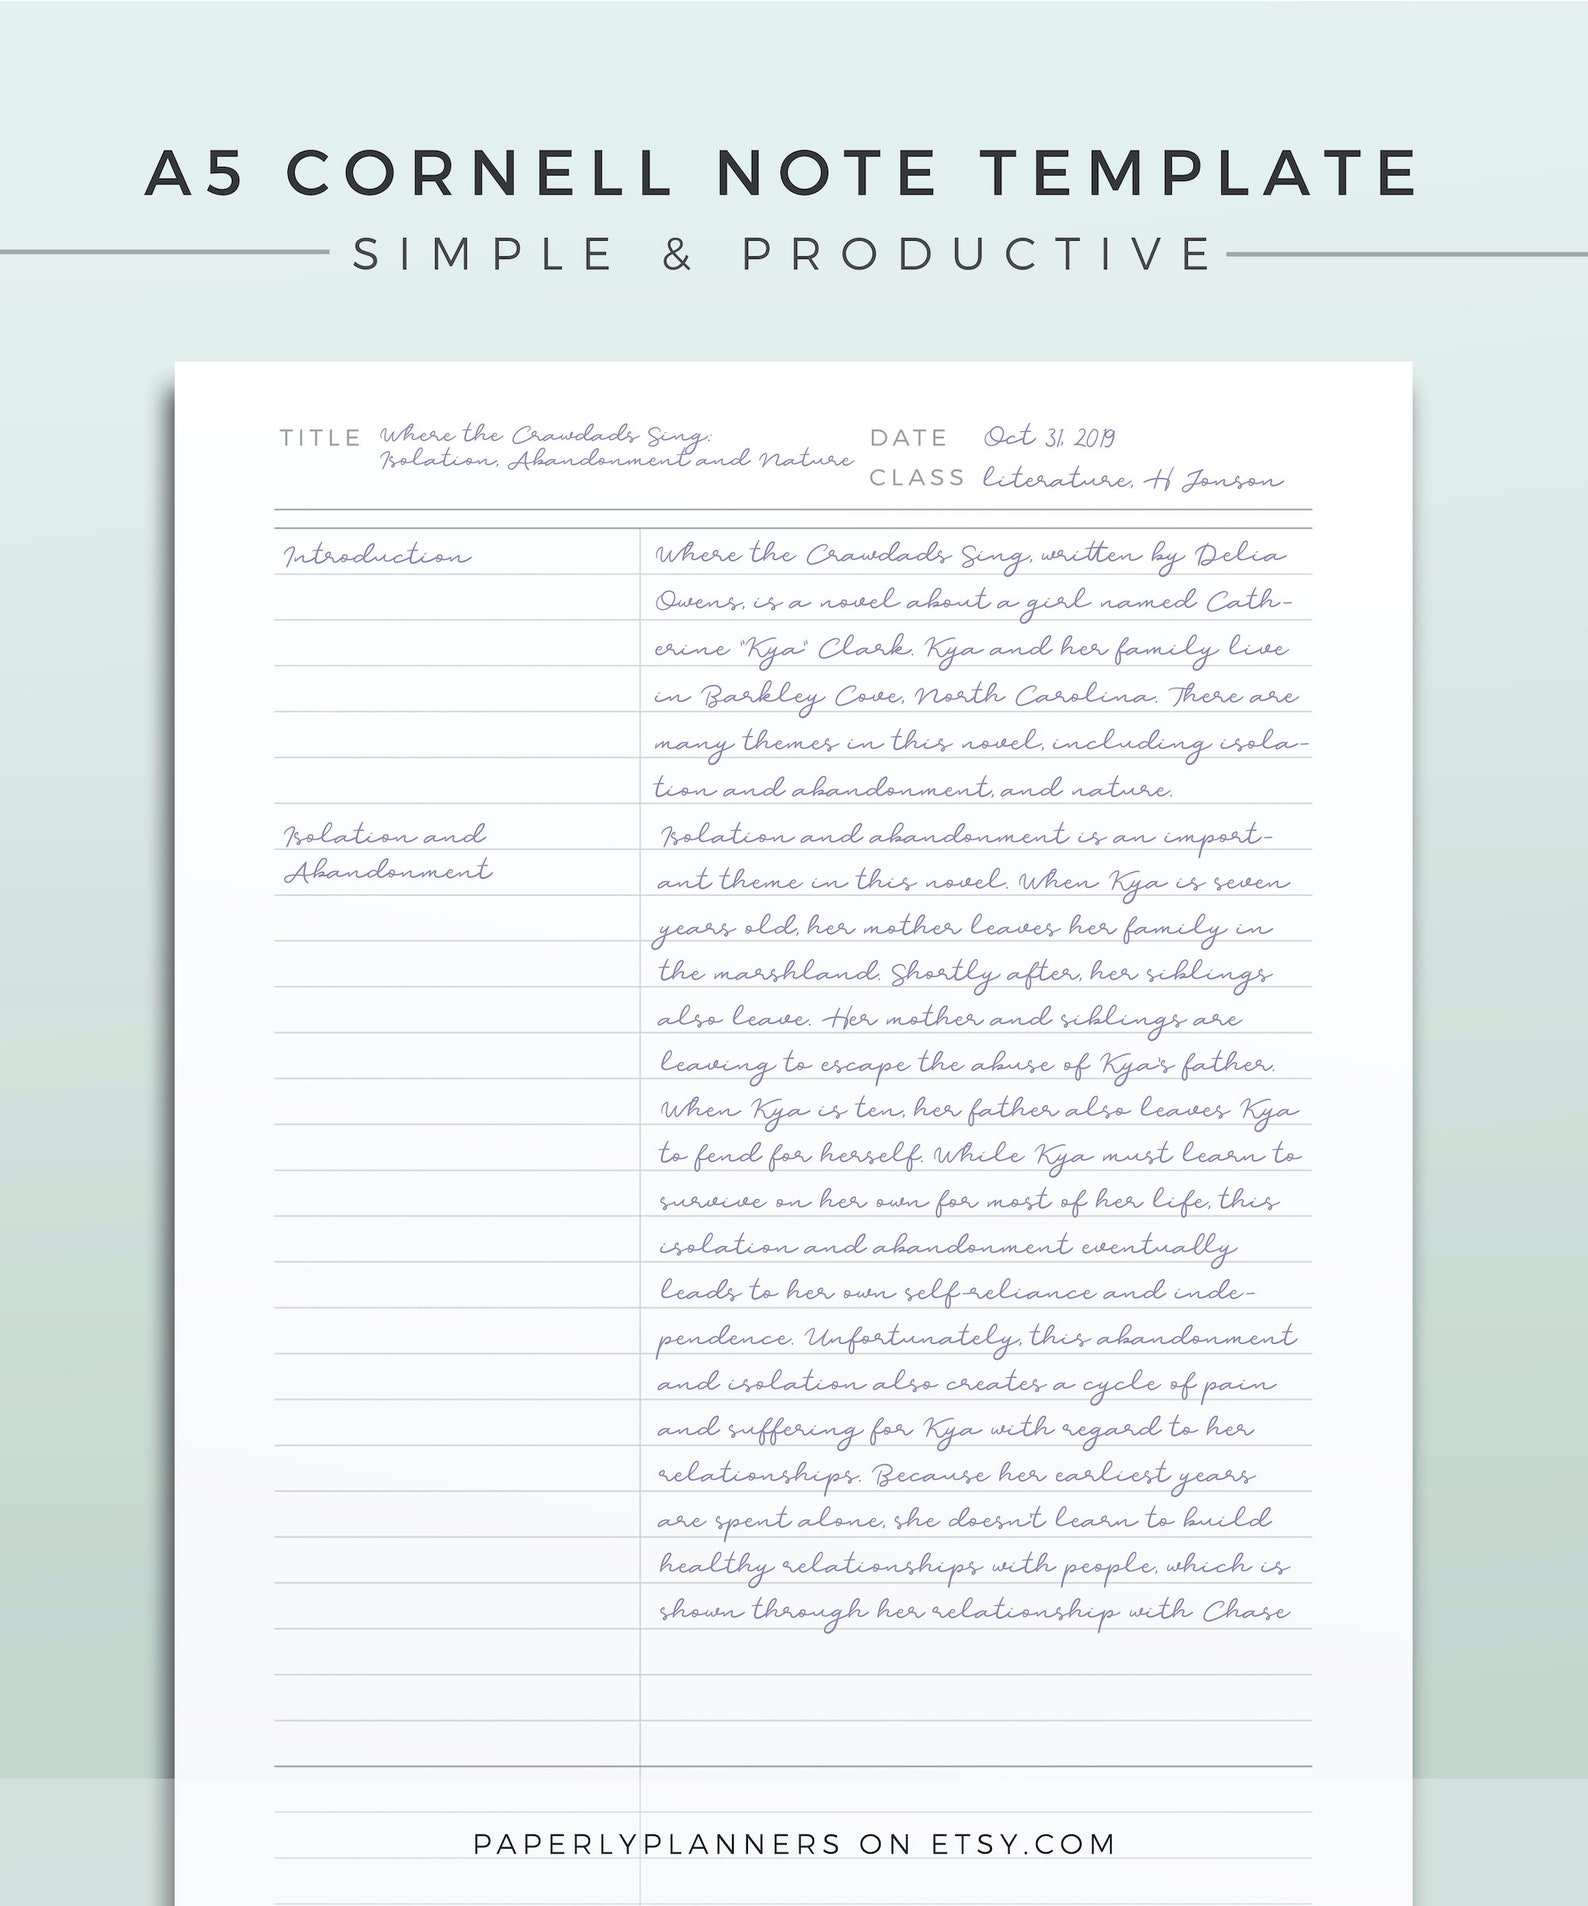 A5 CORNELL NOTE TEMPLATE
SIMPLE & PRODUCTIVE
TITLE Where the Crawdads Sing:
Isolation, Abandonment and Nature
DATE Oct 31, 2019
CLASS literature, H Jonson
Introduction
Where the Crawdads Sing, written by Delia
Owens, is a novel about a girl named Cath-
erine "Kya" Clark. Kya and her family live
in Barkley Cove, North Carolina. There are
many themes in this novel, including isola-
tion and abandonment, and nature.
Isolation and
Abandonment
Isolation and abandonment is an import-
ant theme in this novel. When Kya is seven
years old, her mother leaves her family in
the marshland. Shortly after, her siblings
also leave. Her mother and siblings are
leaving to escape the abuse of Kya's father.
When Kya is ten, her father also leaves Kya
to fend for herself. While Kya must learn to
survive on her own for most of her life, this
isolation and abandonment eventually
leads to her own self-reliance and inde-
pendence. Unfortunately, this abandonment
and isolation also creates a cycle of pain
and suffering for Kya with regard to her
relationships. Because her earliest years
are spent alone, she doesn't learn to build
healthy relationships with people, which is
shown through her relationship with Chase
PAPERLYPLANNERS ON ETSY.COM